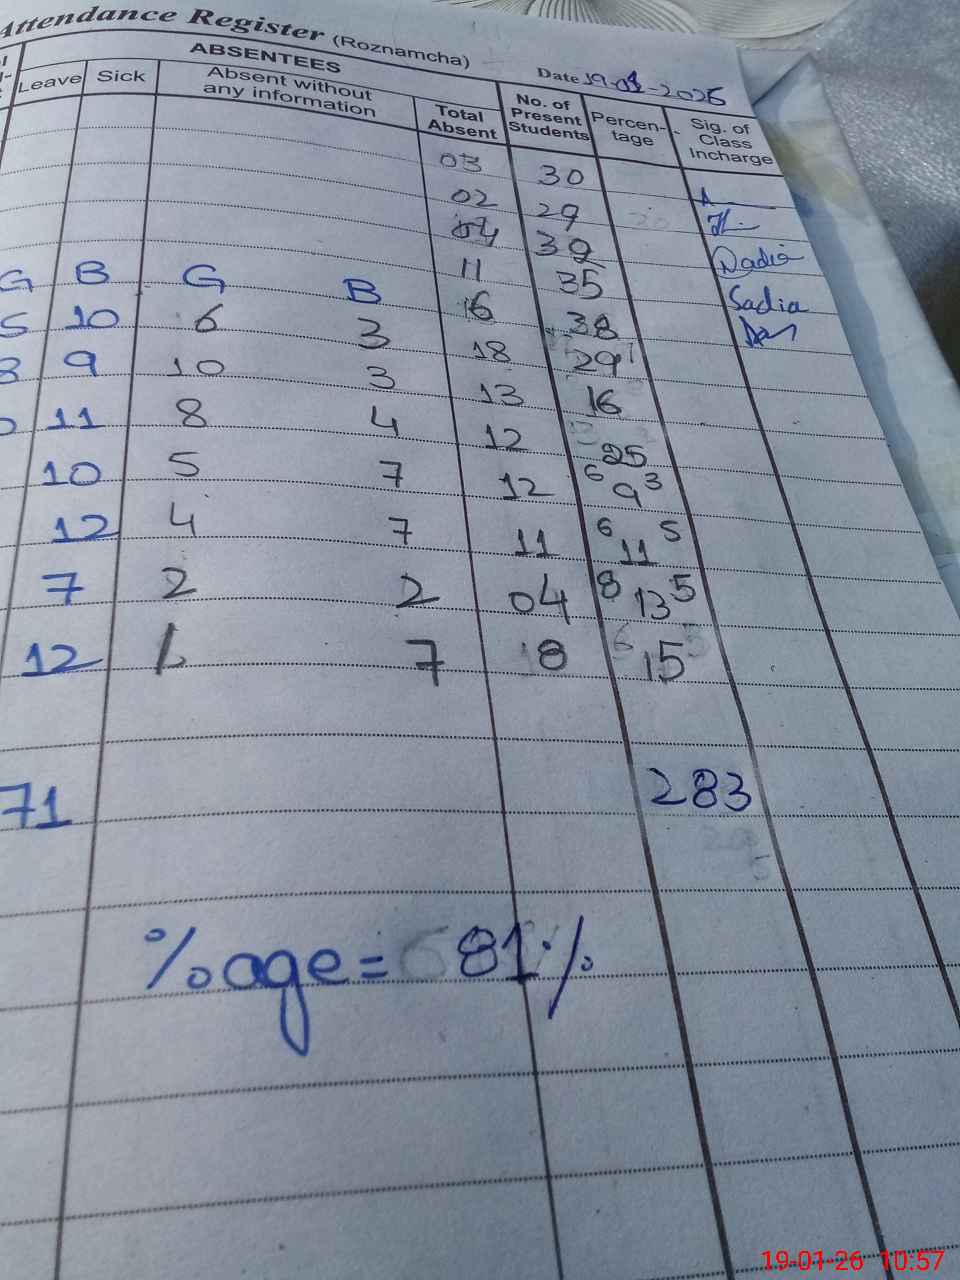 Attendance Register (Roznamcha)
Date 19-01-2026
ABSENTEES
Leave Sick Absent without any information Total Absent No. of Present Students Percen-tage Sig. of Class Incharge
03 30
02 29
04 32
11 35
G B G B 16 38
5 10 6 3 18 29
8 9 10 3 13 16
11 8 4 12 25
10 5 7 12 6 9 3
12 4 7 11 6 11 5
7 2 2 04 8 13 5
12 1 7 8 6 15 5
Nadia
Sadia
71 283
%age = 81%
19-01-26 10:57